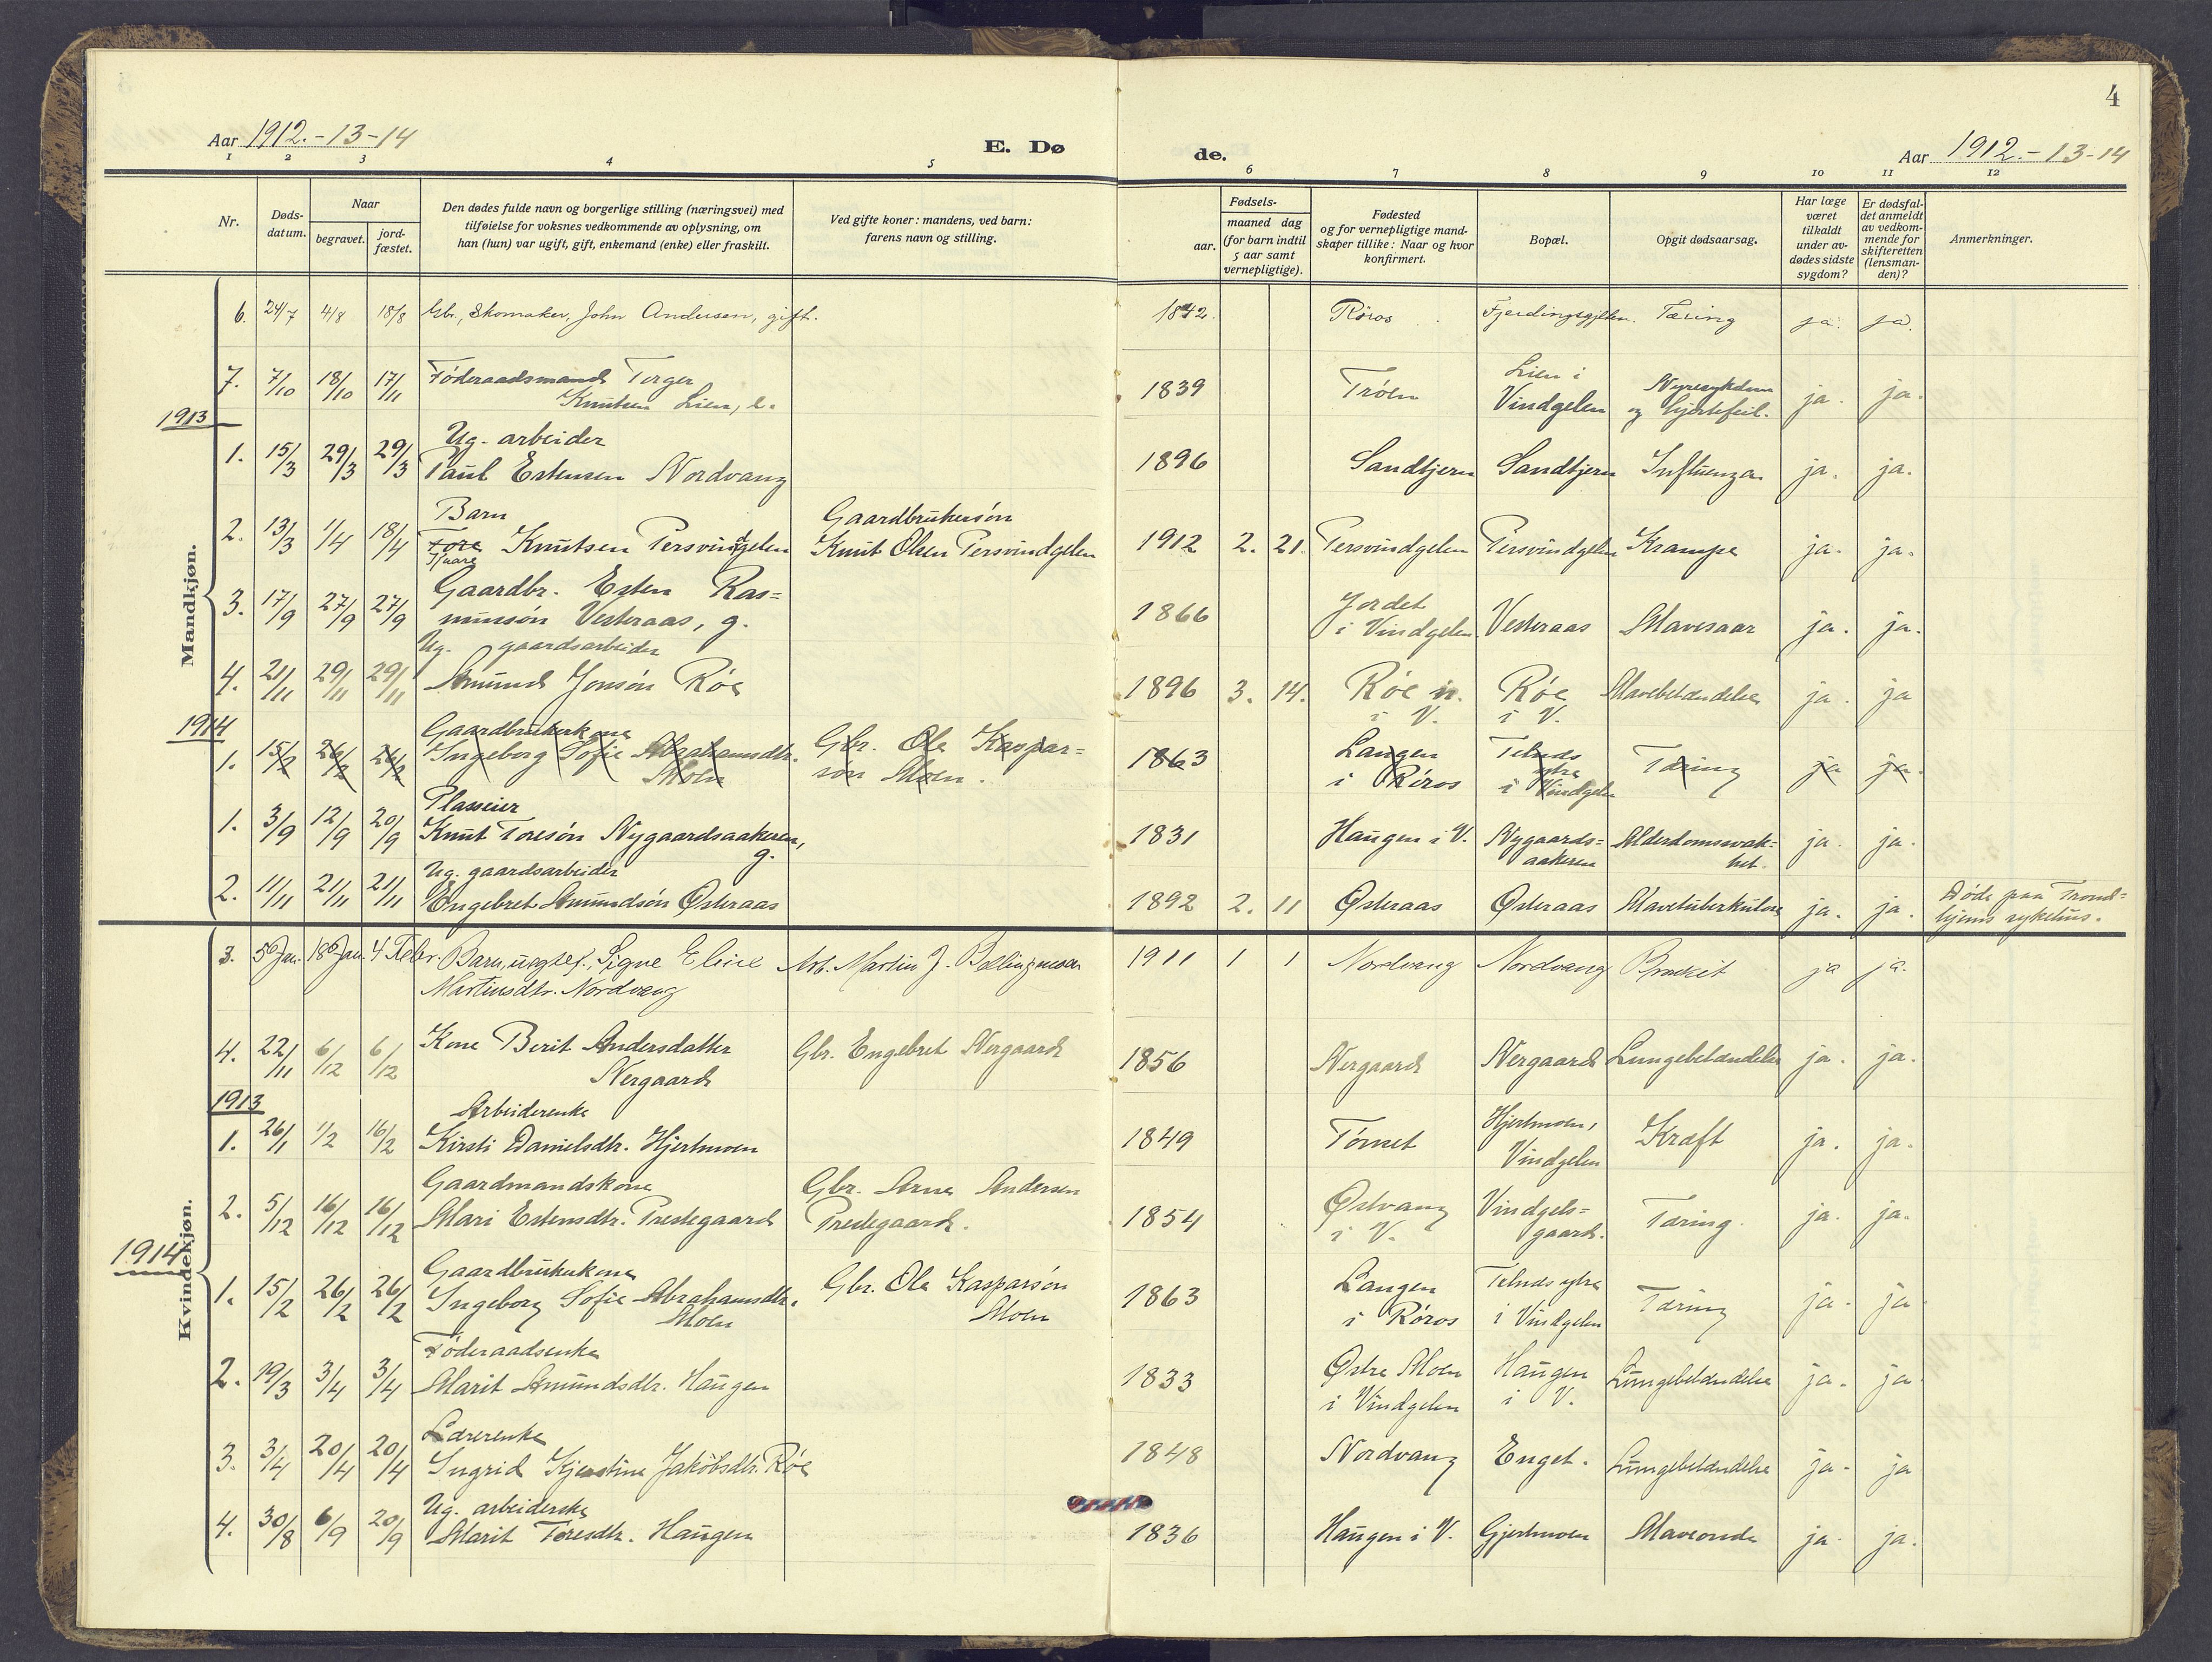 4
Aar 1912.-13-14
E. Dø
de.
Aar 1912.-13-14
1 2 3 4 5 6 7 8 9 10 11 12
Nr.
Døds-
datum.
Naar
begravet.
jord-
fæstet.
Den dødes fulde navn og borgerlige stilling (næringsvei) med
tilføielse for voksnes vedkommende av oplysning, om
han (hun) var ugift, gift, enkemand (enke) eller fraskilt.
Ved gifte koner: mandens, ved barn:
farens navn og stilling.
Fødsels-
aar. maaned dag
(for barn indtil
5 aar samt
vernepligtige).
Fødested
og for vernepligtige mand-
skaper tillike: Naar og hvor
konfirmert.
Bopæl.
Opgit dødsaarsag.
Har læge
været
tilkaldt
under av-
dødes sidste
sygdom?
Er dødsfal-
det anmeldt
av vedkom-
mende for
skifteretten
(lensman-
den)?
Anmerkninger.
Mandkjøn.
6. 24/7 4/8 18/8 Gbr., Skomaker, John Andersen, gift. 1842. Røros Fjerdingsgjelen. Tæring ja. ja.
7. 7/10 18/10 17/11 Føderaadsmand Torger
Knutsen Lien, e. 1839 Trøen Lien i
Vindgelen Nyresykdom
og hjertefeil. ja. ja.
1913
1. 15/3 29/3 29/3 Ug. arbeider
Paul Estensen Nordvang 1896 Sandtjern Sandtjern Influenza ja. ja.
2. 13/3 1/4 18/4 Barn
Tore Knutsen Persvindgelen
Gaardbrukersøn
Knut Olsen Persvindgelen 1912 2. 21. Persvindgelen Persvindgelen Krampe ja. ja.
3. 17/9 27/9 27/9 Gaardbr. Esten Ras=
mussøn Vesteraas, g. 1866 Jordet
i Vindgelen Vesteraas Mavesaar ja. ja.
4. 21/11 29/11 29/11 Ug. gaardsarbeider
Amund Jonsøn Røe 1896 3. 14. Røe
i V. Røe
i V. Mavebetændelse ja. ja
1914
1. 15/2 26/2 26/2 Gaardbrukerkone
Ingeborg Sofie Abrahamsdtr.
Moen
Gbr. Ole Kaspar=
søn Moen. 1863 Langen
i Røros Telnds
ytre
i Vindgelen Tæring ja ja.
1. 3/9 12/9 20/9 Plasseier
Knut Toresøn Nygaardsaakeren,
g. 1831 Haugen i V. Nygaards=
aakeren Alderdomssvak=
het. ja. ja.
2. 11/11 21/11 21/11 Ug. gaardsarbeider
Engebret Amundsøn Østeraas 1892 2. 11 Østeraas Østeraas Mavetuberkulose ja. ja. Døde paa Trond=
hjems sykehus.
Kvindekjøn.
3. 5 Jan. 18 Jan. 4 Febr. Barn, uegtef., Signe Elise
Martinsdtr. Nordvang
Arb. Martin J. Bellingmoen 1911 1 1 Nordvang Nordvang Bronkit ja ja.
4. 22/11 6/12 6/12 Kone Berit Andersdatter
Nergaard
Gbr. Engebret Nergaard 1856 Nergaard Nergaard Lungebetændelse ja. ja.
1913
1. 26/1 1/2 16/2 Arbeiderenke
Kirsti Danielsdtr. Hjertmoen 1849 Tømet Hjertmoen,
Vindgelen Kræft ja. ja.
2. 5/12 16/12 16/12 Gaardmandskone
Mari Estensdtr. Prestegaard
Gbr. Arne Andersen
Prestegaard. 1854 Østvang
i V. Vindgels=
gaard. Tæring. ja. ja.
1914
1. 15/2 26/2 26/2 Gaardbrukerkone
Ingeborg Sofie Abrahamsdtr.
Moen
Gbr. Ole Kasparsøn
Moen 1863 Langen
i Røros Telnds ytre
i Vindgelen Tæring ja. ja
2. 19/3 3/4 3/4 Føderaadsenke
Marit Amundsdtr. Haugen 1833 Østre Moen
i Vindgelen Haugen
i V. Lungebetændelse ja. ja
3. 3/4 20/4 20/4 Lærerenke
Ingrid Kjerstine Jakobsdtr. Røe 1848 Nordvang Enget. Lungebetændelse ja. ja
4. 30/8 6/9 20/9 Ug. arbeiderske
Marit Toresdtr. Haugen 1836 Haugen i V. Gjertmoen Maveonde ja. ja.